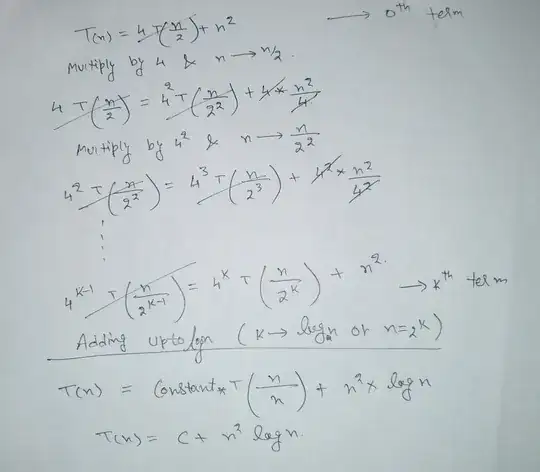 T(n) = 4 T(n/2) + n² ⟶ 0th term
Multiply by 4 & n → n/2.
4 T(n/2) = 4² T(n/2²) + 4 * n²/4
Multiply by 4² & n → n/2²
4² T(n/2²) = 4³ T(n/2³) + 4² * n²/4²
4^(K-1) T(n/2^(K-1)) = 4^K T(n/2^K) + n². → Kth term
Adding upto lgn (K → log₂n or n=2^K)
T(n) = Constant * T(n/n) + n² x logn
T(n) = C + n² logn.